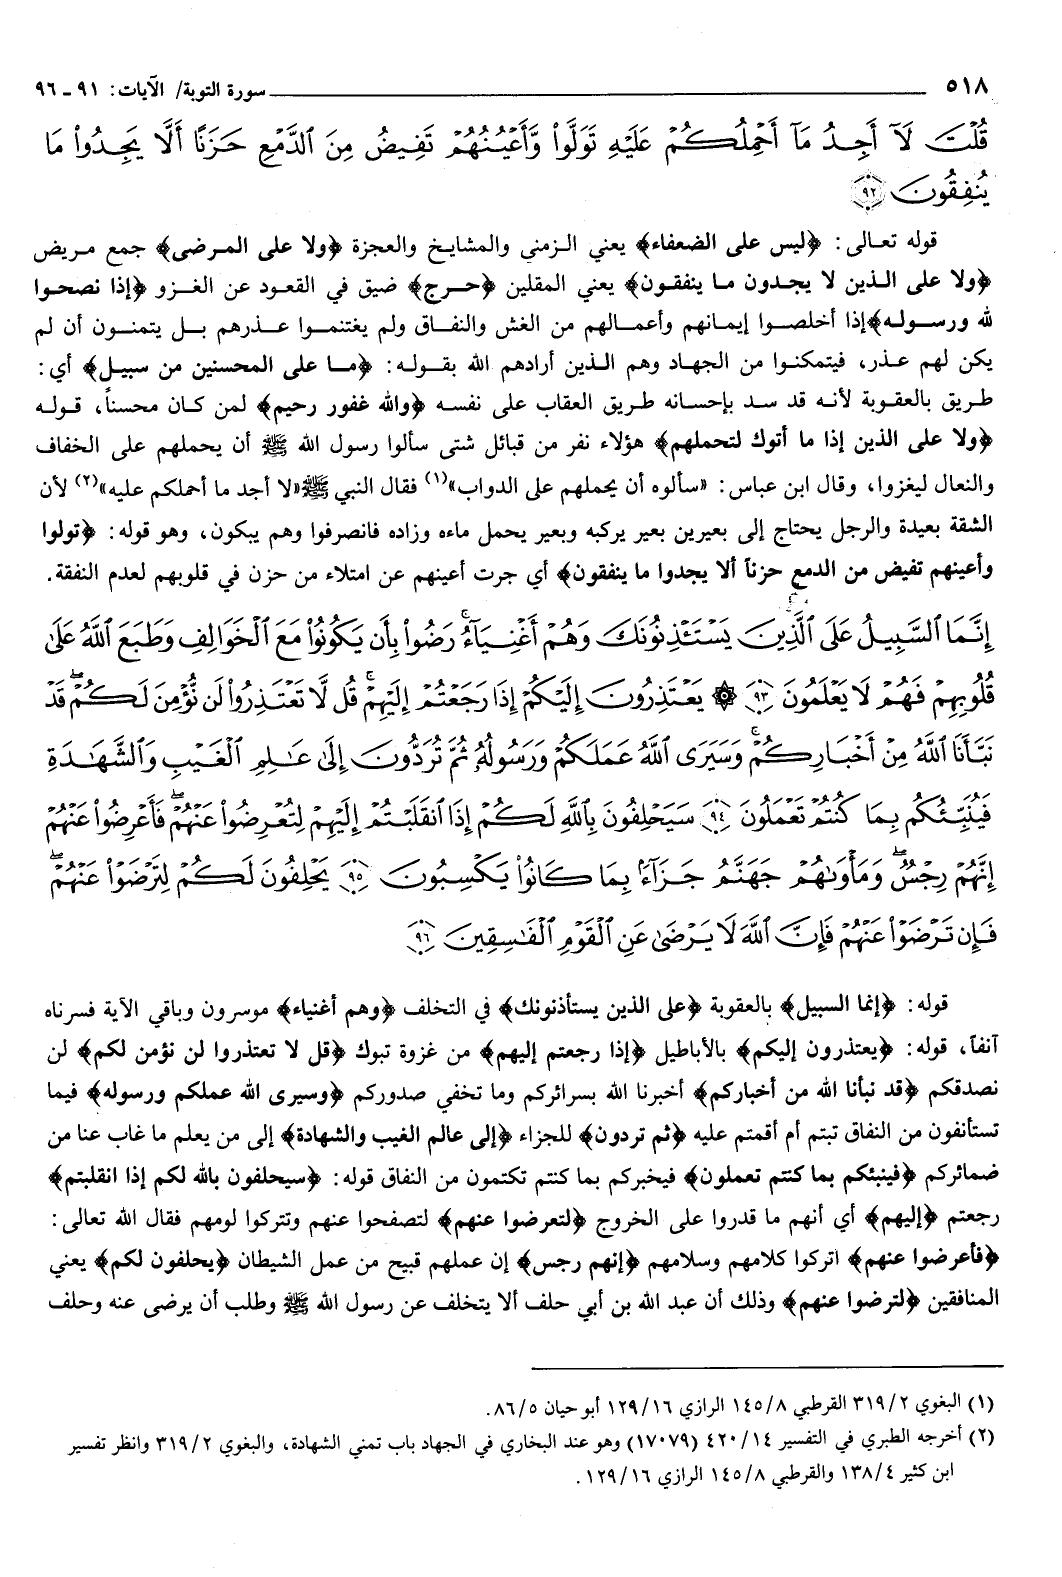 ٥١٨ سورة التوبة/ الآيات: ٩١ ـ ٩٦
قُلْتَ لَآ أَجِدُ مَآ أَحْمِلُكُمْ عَلَيْهِ تَوَلَّوا۟ وَّأَعْيُنُهُمْ تَفِيضُ مِنَ ٱلدَّمْعِ حَزَنًا أَلَّا يَجِدُوا۟ مَا
يُنفِقُونَ ﴿٩٢﴾
قوله تعـالى: ﴿ليس على الضعفاء﴾ يعني الـزمنى والمشايـخ والعجزة ﴿ولا على المـرضى﴾ جمع مـريض
﴿ولا على الـذين لا يجدون مـا ينفقـون﴾ يعني المقلين ﴿حـرج﴾ ضيق في القعود عن الغـزو ﴿إذا نصحـوا
لله ورسـولـه﴾إذا أخلصـوا إيمـانهم وأعمـالهم من الغش والنفـاق ولم يغتنمـوا عـذرهم بـل يتمنـون أن لم
يكن لهم عـذر، فيتمكنـوا من الجهاد وهم الـذين أرادهم الله بقـولـه: ﴿مـا على المحسنين من سبيـل﴾ أي:
طريق بالعقوبة لأنـه قد سد بإحسانه طريق العقاب على نفسه ﴿والله غفور رحيم﴾ لمن كـان محسناً، قـولـه
﴿ولا على الذين إذا ما أتوك لتحملهم﴾ هؤلاء نفر من قبائل شتى سألوا رسول الله ﷺ أن يحملهم على الخفاف
والنعال ليغزوا، وقال ابن عباس: «سألوه أن يحملهم على الدواب»(١) فقال النبي ﷺ«لا أجد ما أحملكم عليه»(٢) لأن
الشقة بعيدة والرجل يحتاج إلى بعيرين بعير يركبه وبعير يحمل ماءه وزاده فانصرفوا وهم يبكون، وهو قوله: ﴿تولوا
وأعينهم تفيض من الدمع حزناً ألا يجدوا ما ينفقون﴾ أي جرت أعينهم عن امتلاء من حزن في قلوبهم لعدم النفقة.
إِنَّمَا ٱلسَّبِيلُ عَلَى ٱلَّذِينَ يَسْتَـْٔذِنُونَكَ وَهُمْ أَغْنِيَآءُ ۚ رَضُوا۟ بِأَن يَكُونُوا۟ مَعَ ٱلْخَوَالِفِ وَطَبَعَ ٱللَّهُ عَلَىٰ
قُلُوبِهِمْ فَهُمْ لَا يَعْلَمُونَ ﴿٩٣﴾ ۞ يَعْتَذِرُونَ إِلَيْكُمْ إِذَا رَجَعْتُمْ إِلَيْهِمْ ۚ قُل لَّا تَعْتَذِرُوا۟ لَن نُّؤْمِنَ لَكُمْ ۖ قَدْ
نَبَّأَنَا ٱللَّهُ مِنْ أَخْبَارِكُمْ ۚ وَسَيَرَى ٱللَّهُ عَمَلَكُمْ وَرَسُولُهُۥ ثُمَّ تُرَدُّونَ إِلَىٰ عَـٰلِمِ ٱلْغَيْبِ وَٱلشَّهَـٰدَةِ
فَيُنَبِّئُكُم بِمَا كُنتُمْ تَعْمَلُونَ ﴿٩٤﴾ سَيَحْلِفُونَ بِٱللَّهِ لَكُمْ إِذَا ٱنقَلَبْتُمْ إِلَيْهِمْ لِتُعْرِضُوا۟ عَنْهُمْ ۖ فَأَعْرِضُوا۟ عَنْهُمْ ۖ
إِنَّهُمْ رِجْسٌ ۖ وَمَأْوَىٰهُمْ جَهَنَّمُ جَزَآءًۢ بِمَا كَانُوا۟ يَكْسِبُونَ ﴿٩٥﴾ يَحْلِفُونَ لَكُمْ لِتَرْضَوْا۟ عَنْهُمْ ۖ
فَإِن تَرْضَوْا۟ عَنْهُمْ فَإِنَّ ٱللَّهَ لَا يَرْضَىٰ عَنِ ٱلْقَوْمِ ٱلْفَـٰسِقِينَ ﴿٩٦﴾
قوله: ﴿إنما السبيل﴾ بالعقوبة ﴿على الذين يستأذنونك﴾ في التخلف ﴿وهم أغنياء﴾ موسرون وباقي الآية فسرناه
آنفاً، قوله: ﴿يعتذرون إليكم﴾ بالأباطيل ﴿إذا رجعتم إليهم﴾ من غزوة تبوك ﴿قل لا تعتذروا لن نؤمن لكم﴾ لن
نصدقكم ﴿قد نبأنا الله من أخباركم﴾ أخبرنا الله بسرائركم وما تخفي صدوركم ﴿وسيرى الله عملكم ورسوله﴾ فيما
تستأنفون من النفاق تبتم أم أقمتم عليه ﴿ثم تردون﴾ للجزاء ﴿إلى عالم الغيب والشهادة﴾ إلى من يعلم ما غاب عنا من
ضمائركم ﴿فينبئكم بما كنتم تعملون﴾ فيخبركم بما كنتم تكتمون من النفاق قوله: ﴿سيحلفون بالله لكم إذا انقلبتم﴾
رجعتم ﴿إليهم﴾ أي أنهم ما قدروا على الخروج ﴿لتعرضوا عنهم﴾ لتصفحوا عنهم وتتركوا لومهم فقال الله تعالى:
﴿فأعرضوا عنهم﴾ اتركوا كلامهم وسلامهم ﴿إنهم رجس﴾ إن عملهم قبيح من عمل الشيطان ﴿يحلفون لكم﴾ يعني
المنافقين ﴿لترضوا عنهم﴾ وذلك أن عبد الله بن أبي حلف ألا يتخلف عن رسول الله ﷺ وطلب أن يرضى عنه وحلف
(١) البغوي ٣١٩/٢ القرطبي ١٤٥/٨ الرازي ١٢٩/١٦ أبو حيان ٨٦/٥.
(٢) أخرجه الطبري في التفسير ٤٢٠/١٤ (١٧٠٧٩) وهو عند البخاري في الجهاد باب تمني الشهادة، والبغوي ٣١٩/٢ وانظر تفسير
ابن كثير ١٣٨/٤ والقرطبي ١٤٥/٨ الرازي ١٢٩/١٦.